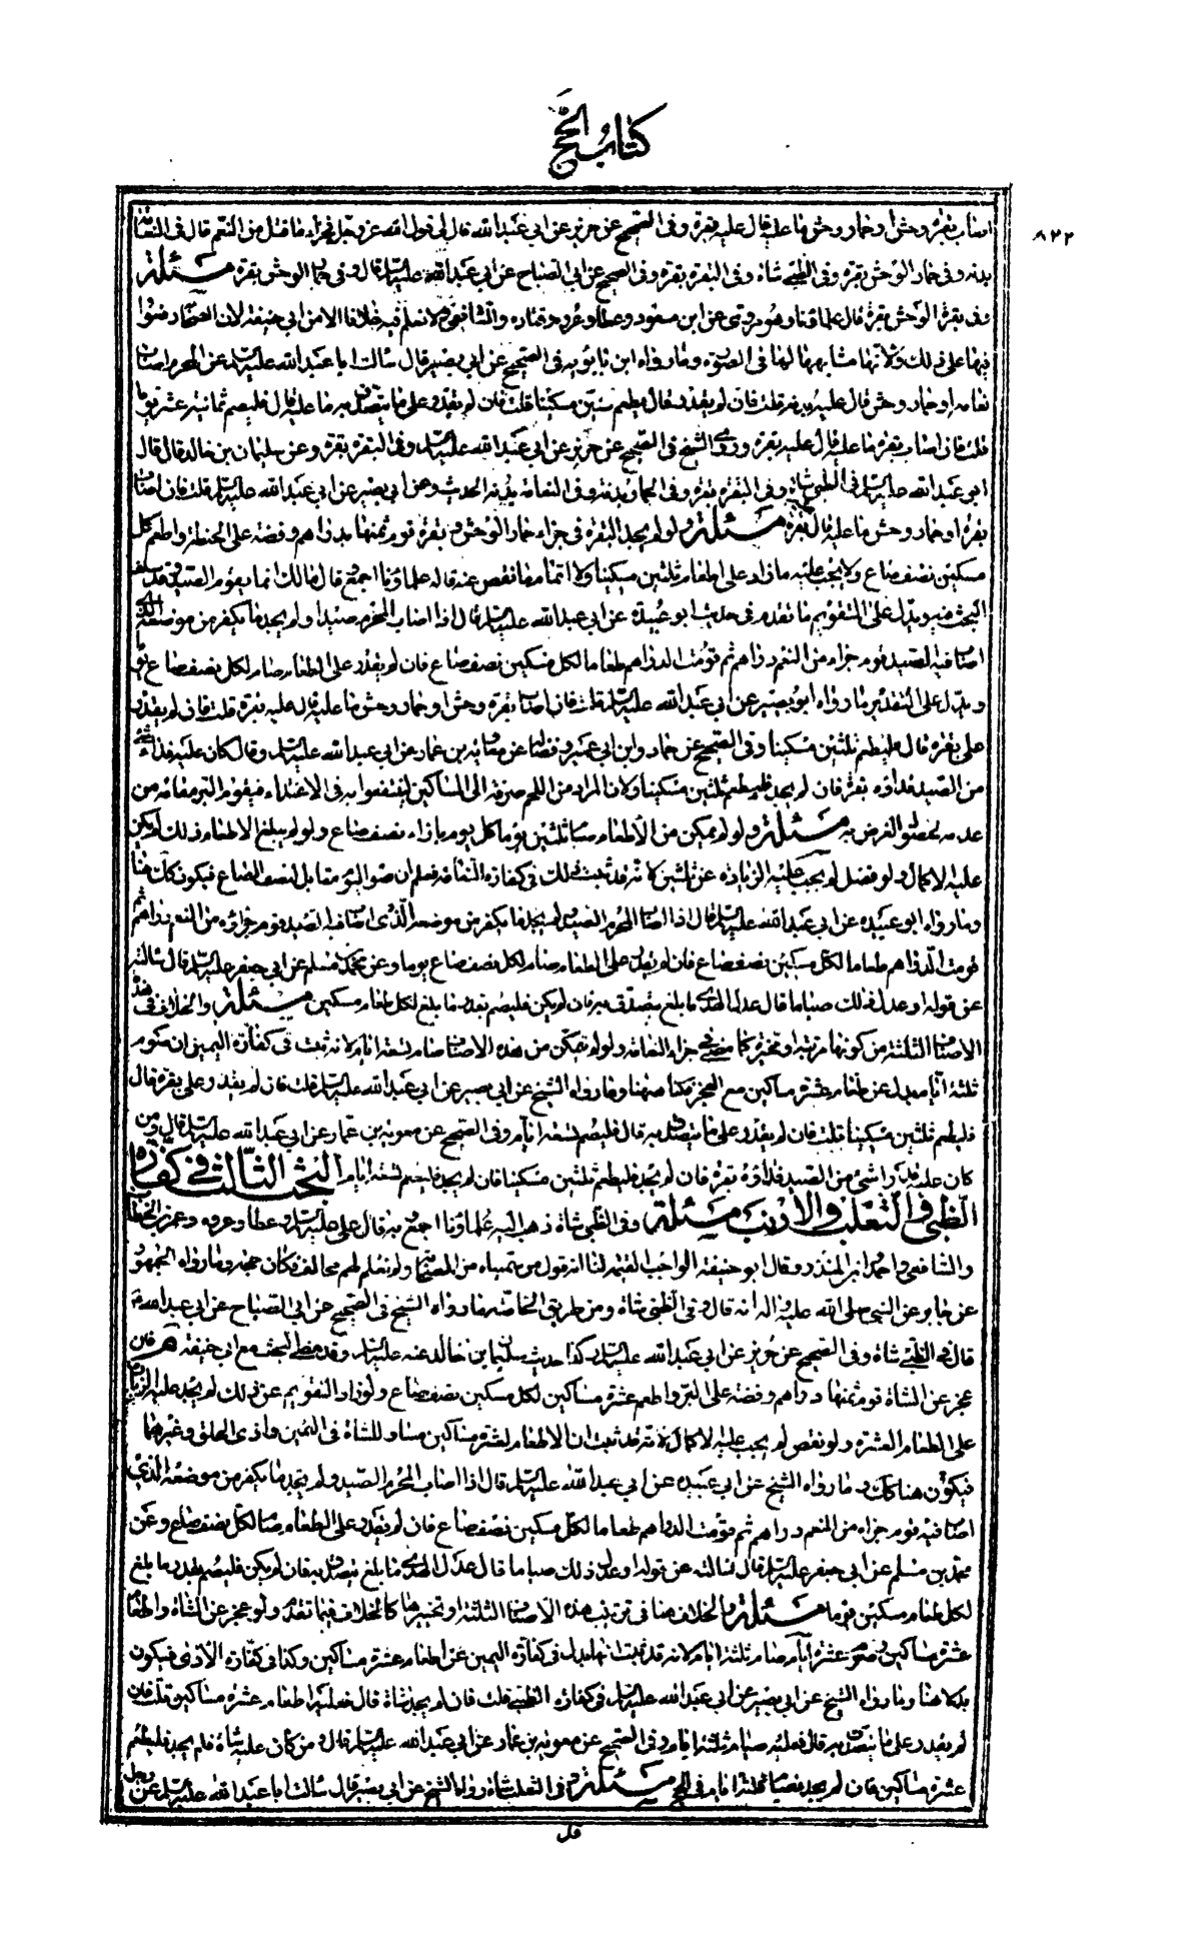 كتاب الحج
٨٢٢
اصاب بقرة وحش او حمار وحش ما عليه قال عليه بقرة وفي الصحيح عن حريز عن ابي عبد الله قال في قول الله عز وجل فجزاء ما قتل من النعم قال في النعامة
بدنة وفي حمار الوحش بقرة وفي الظبي شاة وفي البقرة بقرة وفي الصحيح عن ابي الصباح عن ابي عبد الله عليه السلام قال وفي حمار الوحش بقرة مسئلة
وفي بقرة الوحش بقرة قال علماؤنا وهو مروي عن ابن مسعود وعطا وعروة وقتادة والشافعي ولا نعلم فيه خلافا الا من ابي حنيفة لان الصحابة قضوا
فيها على ذلك ولانها مشابهة لها في الصورة وما رواه ابن بابويه في الصحيح عن ابي بصير قال سالت ابا عبد الله عليه السلام عن المحرم اصاب
نعامة او حمار وحش قال عليه بدنة قلت فان لم يقدر قال يطعم ستين مسكينا قلت فان لم يقدر على ما يتصدق به ما عليه قال فليصم ثمانية عشر يوما
قلت فان اصاب بقرة ما عليه قال عليه بقرة وروى الشيخ في الصحيح عن حريز عن ابي عبد الله عليه السلام وفي البقرة بقرة وعن سليمان بن خالد قال قال
ابو عبد الله عليه السلام في الظبي شاة وفي البقرة بقرة وفي الحمار بدنة وفي النعامة بدنة الحديث وعن ابي بصير عن ابي عبد الله عليه السلام قلت فان اصاب
بقرة او حمار وحش ما عليه قال بقرة مسئلة ولو لم يجد البقرة في جزاء حمار الوحش وبقرة قوم ثمنها بدراهم وفضه على الحنطة واطعم كل
مسكين نصف صاع ولا يجب عليه ما زاد على اطعام ثلثين مسكينا ولا اتمام ما نقص عنه قاله علماؤنا اجمع قال مالك انما يقوم الصيد وقد سلف
البحث فيه ويدل على التقويم ما تقدم في حديث ابو عبيدة عن ابي عبد الله عليه السلام قال اذا اصاب المحرم صيدا ولم يجد ما يكفر من موضعه الذي
اصاب فيه الصيد قوم جزاه من النعم دراهم ثم قومت الدراهم طعاما لكل مسكين نصف صاع فان لم يقدر على الطعام صام لكل نصف صاع يوما
ويدل على التقدير ما رواه ابو بصير عن ابي عبد الله عليه السلام قلت فان اصاب بقرة وحش او حمار وحش ما عليه قال عليه بقرة قلت فان لم يقدر
على بقرة قال فليطعم ثلثين مسكينا وفي الصحيح عن حماد وابن ابي عمير وفضالة عن معاوية بن عمار عن ابي عبد الله عليه السلام وقال كان عليه فداء شيء
من الصيد فداؤه بقرة فان لم يجد فليطعم ثلثين مسكينا ولان المراد من اللحم صرفه الى المساكين لينتفعوا به في الاغتذاء فيقوم البر مقامه من
عدمه لحصول الغرض به مسئلة ولو لم يتمكن من الاطعام صام ثلثين يوما كل يوم بازاء نصف صاع ولو لم يبلغ الاطعام ذلك لم يكن
عليه الاكمال ولو فضل لم يجب عليه الزيادة عن ثلثين لانه قد ثبت ذلك في كفارة النعامة فعلم ان صوم اليوم مقابل لنصف الصاع فيكون كذلك هنا
وما رواه ابو عبيدة عن ابي عبد الله عليه السلام قال اذا اصاب المحرم الصيد لم يجد ما يكفر من موضعه الذي اصاب فيه الصيد قوم جزاؤه من النعم دراهم ثم
قومت الدراهم طعاما لكل مسكين نصف صاع فان لم يقدر على الطعام صام لكل نصف صاع يوما وعن محمد بن مسلم عن ابي جعفر عليه السلام قال سالته
عن قوله او عدل ذلك صياما قال عدل الهدي ما بلغ يتصدق به فان لم يكن فليصم بقدر ما بلغ لكل طعام مسكين مسئلة والخلاف في هذه
الاصناف الثلثة من كونها مرتبة او مخيرة كما مضى في جزاء النعامة ولو لم يتمكن من هذه الاصناف صام تسعة ايام لانه ثبت في كفارة اليمين ان صوم
ثلثة ايام بدل عن طعام عشرة مساكين مع العجز فكذا هنا وما رواه الشيخ عن ابي بصير عن ابي عبد الله عليه السلام قلت فان لم يقدر على بقرة قال
فليطعم ثلثين مسكينا قلت فان لم يقدر على ما يتصدق به قال فليصم تسعة ايام وفي الصحيح عن معوية بن عمار عن ابي عبد الله عليه السلام قال ومن
كان عليه فداء شيء من الصيد فداؤه بقرة فان لم يجد فليطعم ثلثين مسكينا فان لم يجد فليصم تسعة ايام البحث الثالث في كفارة
الظبي والثعلب والارنب مسئلة وفي الظبي شاة ذهب اليه علماؤنا اجمع وبه قال علي عليه السلام وعطا وعروة وعمر بن الخطاب
والشافعي واحمد ابن المنذر وقال ابو حنيفة الواجب القيمة لنا انه قول من سميناه من الصحابة ولم نعلم لهم مخالف فكان حجة وما رواه الجمهور
عن جابر عن النبي صلى الله عليه واله انه قال وفي الظبي شاة ومن طريق الخاصة ما رواه الشيخ في الصحيح عن ابي الصباح عن ابي عبد الله
قال وفي الظبي شاة وفي الصحيح عن حريز عن ابي عبد الله عليه السلام وكذا حديث سليمان بن خالد عنه عليه السلام وقد مضى البحث مع ابي حنيفة فان
عجز عن الشاة قوم ثمنها دراهم وفضه على البر واطعم عشرة مساكين لكل مسكين نصف صاع ولو زاد التقويم عن ذلك لم يجب عليه الزيادة
على اطعام العشرة ولو نقص لم يجب عليه الاكمال لانه قد ثبت ان الاطعام لعشرة مساكين مساو للشاة في اليمين واذى الحلق وغيرهما
فيكون هنا كذلك وما رواه الشيخ عن ابي عبيدة عن ابي عبد الله عليه السلام قال اذا اصاب المحرم الصيد ولم يجد ما يكفر من موضعه الذي
اصاب فيه قوم جزاه من النعم دراهم ثم قومت الدراهم طعاما لكل مسكين نصف صاع فان لم يقدر على الطعام صام لكل نصف صاع وعن
محمد بن مسلم عن ابي جعفر عليه السلام قال سالته عن قوله او عدل ذلك صياما قال عدل الهدي ما بلغ يتصدق به فان لم يكن فليصم بقدر ما بلغ
لكل طعام مسكين يوما مسئلة والخلاف هنا في ترتيب هذه الاصناف الثلثة او تخييرها كالخلاف فيما تقدم ولو عجز عن الشاة والطعام
عشرة مساكين وصوم عشرة ايام صام ثلثة ايام لانه قد ثبت انها بدل في كفارة اليمين عن اطعام عشرة مساكين وكذا في كفارة الاذى فيكون
بدلا هنا وما رواه الشيخ عن ابي بصير عن ابي عبد الله عليه السلام في كفارة الظبي قلت فان لم يجد شاة قال فعليه اطعام عشرة مساكين قلت فان
لم يقدر على ما يتصدق به قال فعليه صيام ثلثة ايام وفي الصحيح عن معوية بن عمار عن ابي عبد الله عليه السلام قال ومن كان عليه شاة فلم يجد فليطعم
عشرة مساكين فان لم يجد فصيام ثلثة ايام في الحج مسئلة وفي الثعلب شاة رواه الشيخ عن ابي بصير قال سالت ابا عبد الله عليه السلام عن رجل
قتل